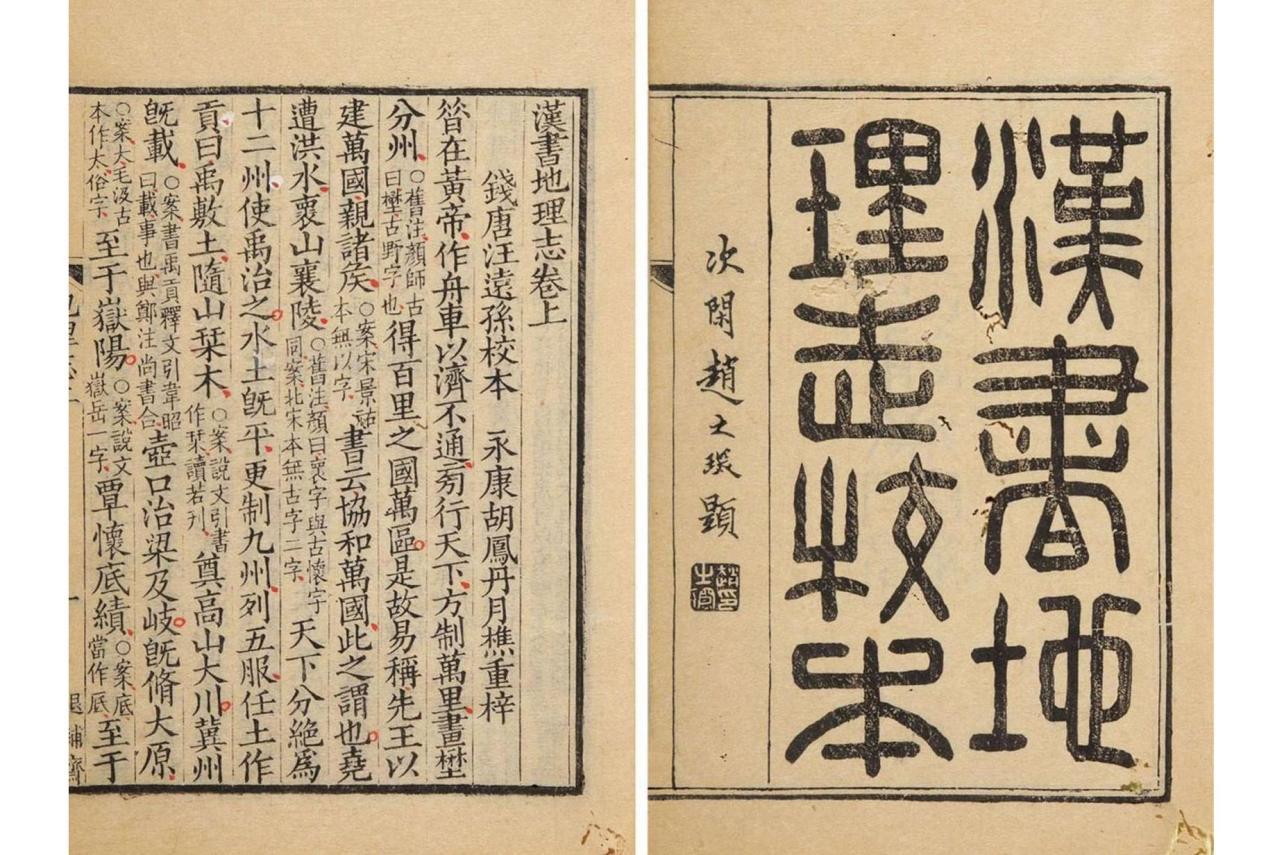 漢書地
理志校本
次閑趙之琛題
漢書地理志卷上
錢唐汪遠孫校本 永康胡鳳丹月樵重梓
昝在黃帝作舟車以濟不通㫄行天下方制萬里畫壄
分州○舊注顏師古曰壄古野字也得百里之國萬區是故易稱先王以
建萬國親諸矦○案宋景祐本無以字書云協和萬國此之謂也堯
遭洪水褱山襄陵○舊注顏曰褱字與古懷字同案北宋本無古字二字天下分絕爲
十二州使禹治之水土旣平更制九州列五服任土作
貢曰禹敷土隨山栞木○案說文引書作栞讀若刊奠高山大川冀州
旣載○案書禹貢釋文引韋昭曰載事也與鄭注尚書合壺口治梁及岐旣脩大原
○案大毛汲古本作太俗字至于嶽陽○案說文嶽岳一字覃懷底績○案底當作厎至于
退補齋